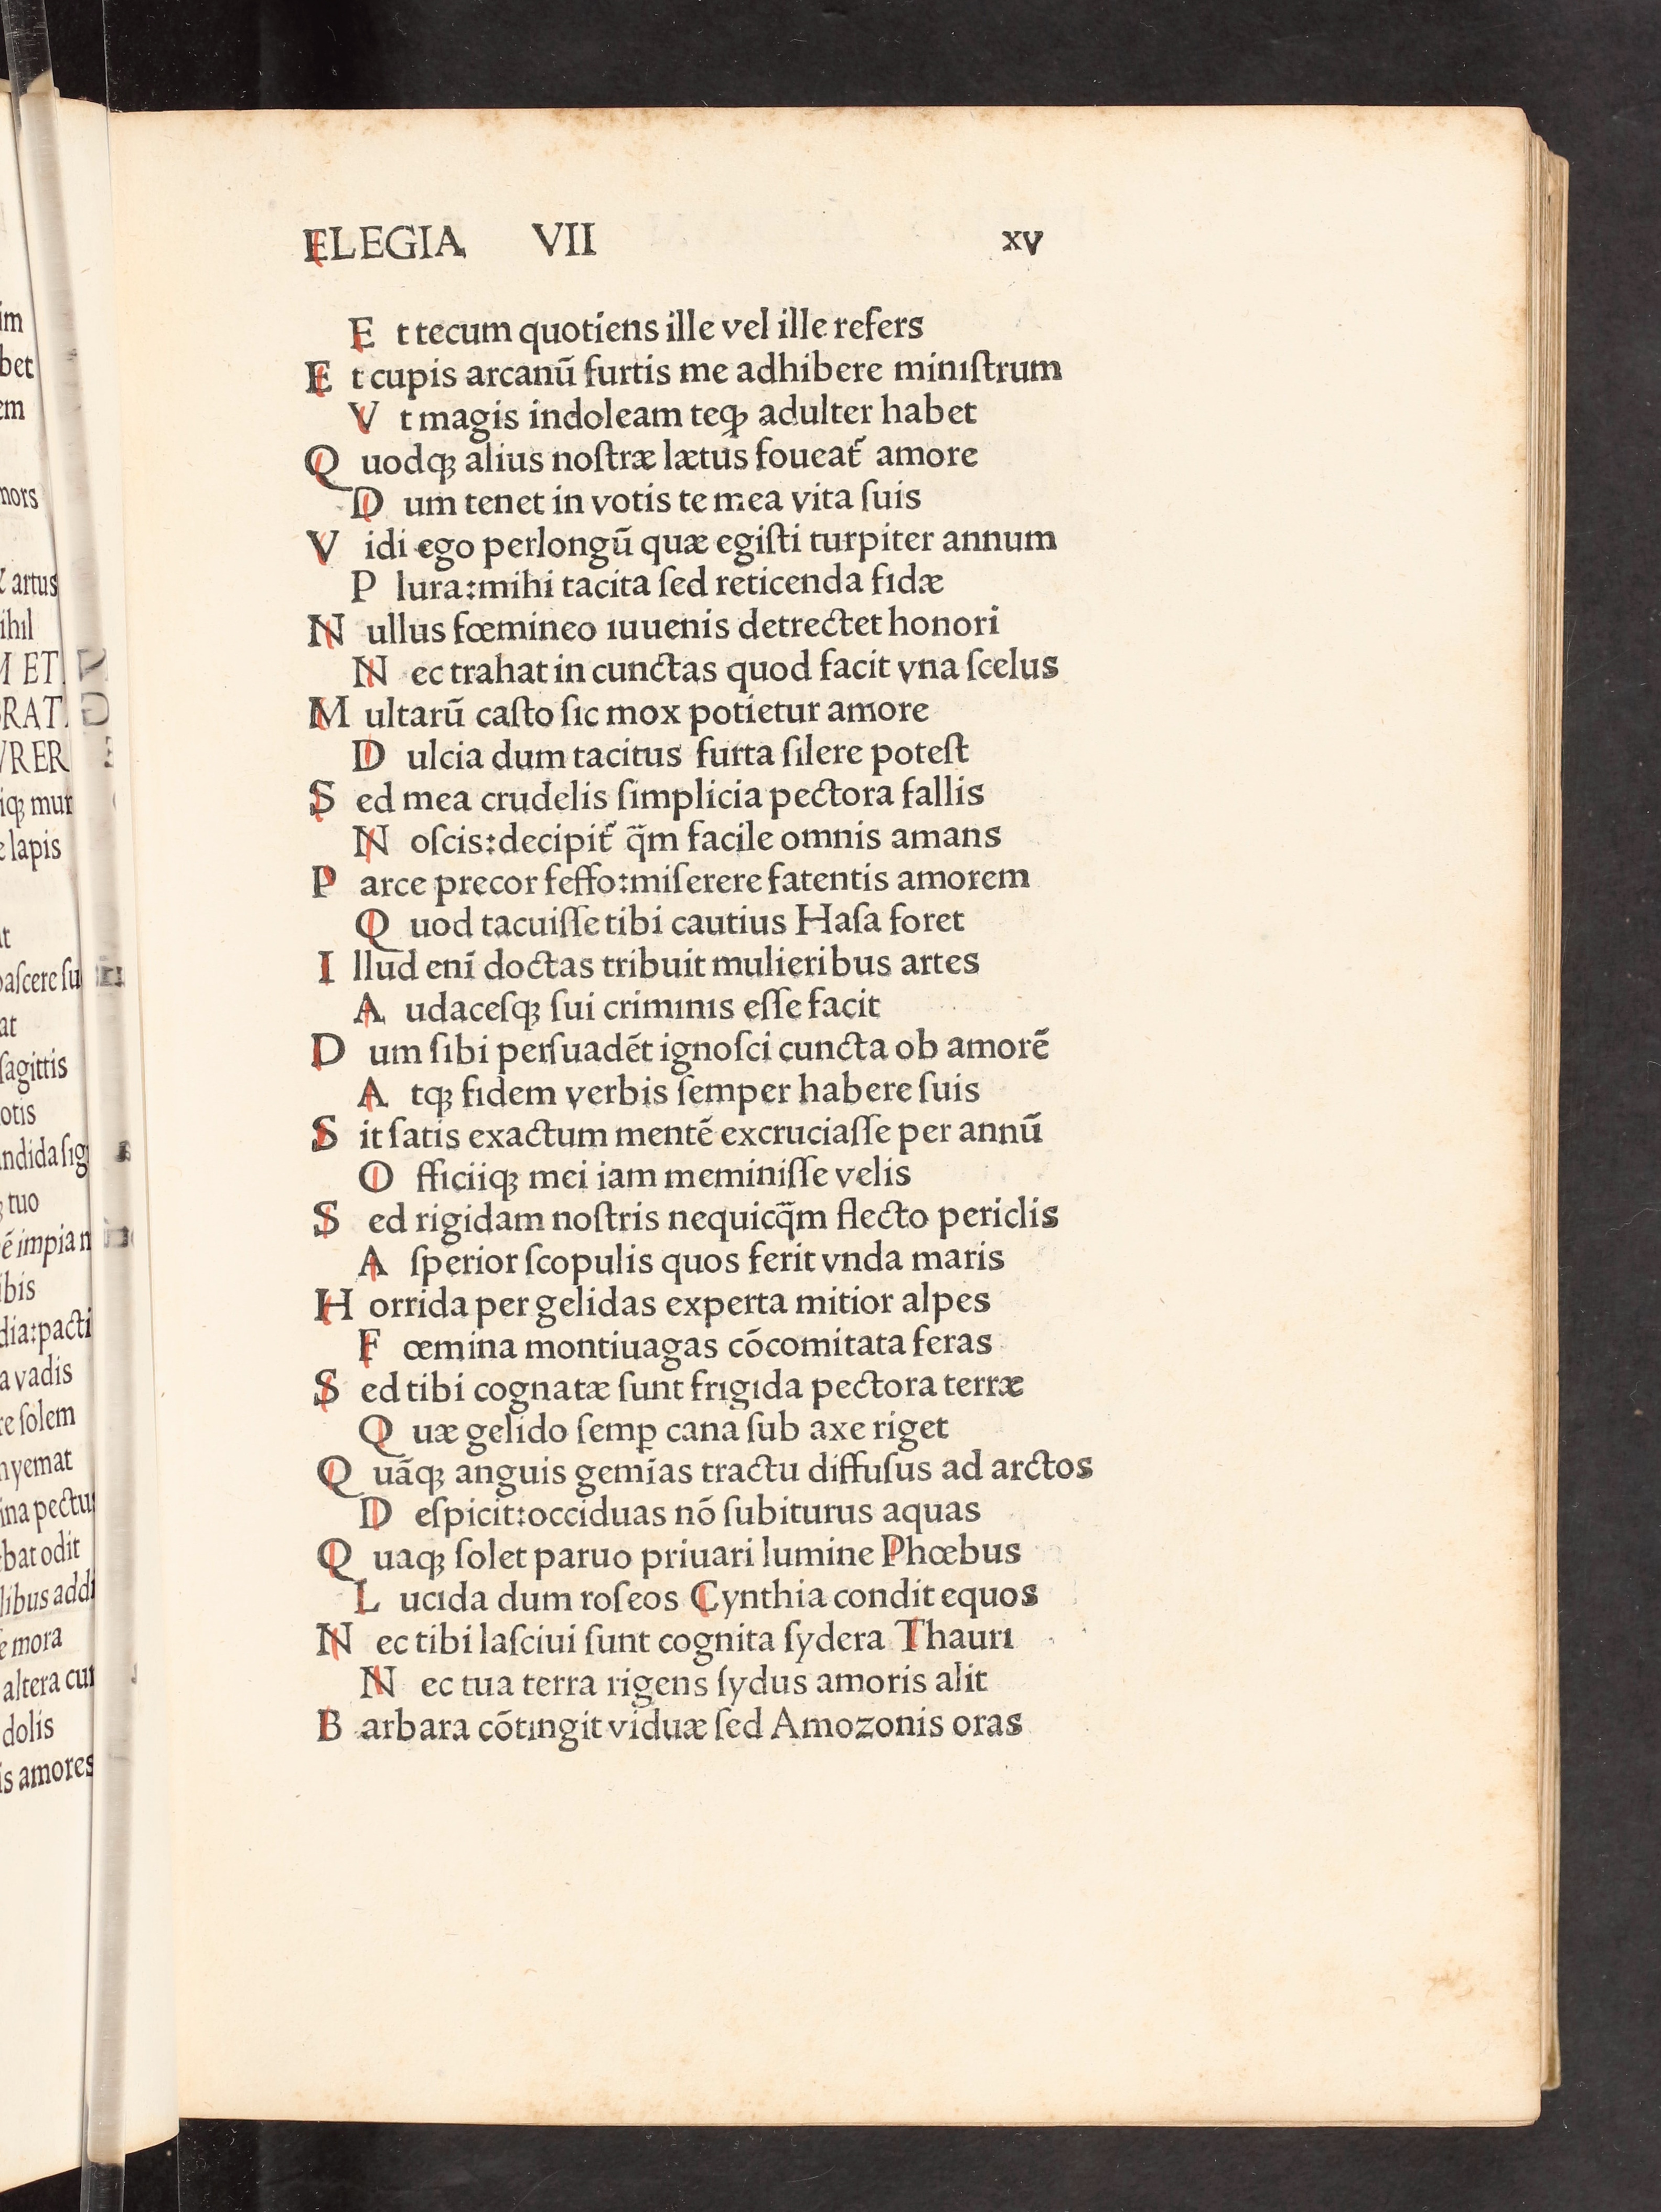 ELEGIA VII xv
E t tecum quotiens ille vel ille refers
E t cupis arcanū furtis me adhibere miniſtrum
V t magis indoleam teqꝫ adulter habet
Q uodqꝫ alius noſtræ lætus foueat᷑ amore
D um tenet in votis te mea vita ſuis
V idi ego perlongū quæ egiſti turpiter annum
P lura:mihi tacita ſed reticenda fidæ
N ullus fœmineo iuuenis detrectet honori
N ec trahat in cunctas quod facit vna ſcelus
M ultarū caſto ſic mox potietur amore
D ulcia dum tacitus furta ſilere poteſt
S ed mea crudelis ſimplicia pectora fallis
N oſcis:decipit᷑ q̄m facile omnis amans
P arce precor feſſo:miſerere fatentis amorem
Q uod tacuiſſe tibi cautius Haſa foret
I llud enī doctas tribuit mulieribus artes
A udaceſqꝫ ſui criminis eſſe facit
D um ſibi perſuadēt ignoſci cuncta ob amorē
A tqꝫ fidem verbis ſemper habere ſuis
S it ſatis exactum mentē excruciaſſe per annū
O fficiiqꝫ mei iam meminiſſe velis
S ed rigidam noſtris nequicq̄m flecto periclis
A ſperior ſcopulis quos ferit vnda maris
H orrida per gelidas experta mitior alpes
F œmina montiuagas cōcomitata feras
S ed tibi cognatæ ſunt frigida pectora terræ
Q uæ gelido ſemꝑ cana ſub axe riget
Q uāqꝫ anguis gemīas tractu diffuſus ad arctos
D eſpicit:occiduas nō ſubiturus aquas
Q uaqꝫ ſolet paruo priuari lumine Phœbus
L ucida dum roſeos Cynthia condit equos
N ec tibi laſciui ſunt cognita ſydera Thauri
N ec tua terra rigens ſydus amoris alit
B arbara cōtingit viduæ ſed Amozonis oras